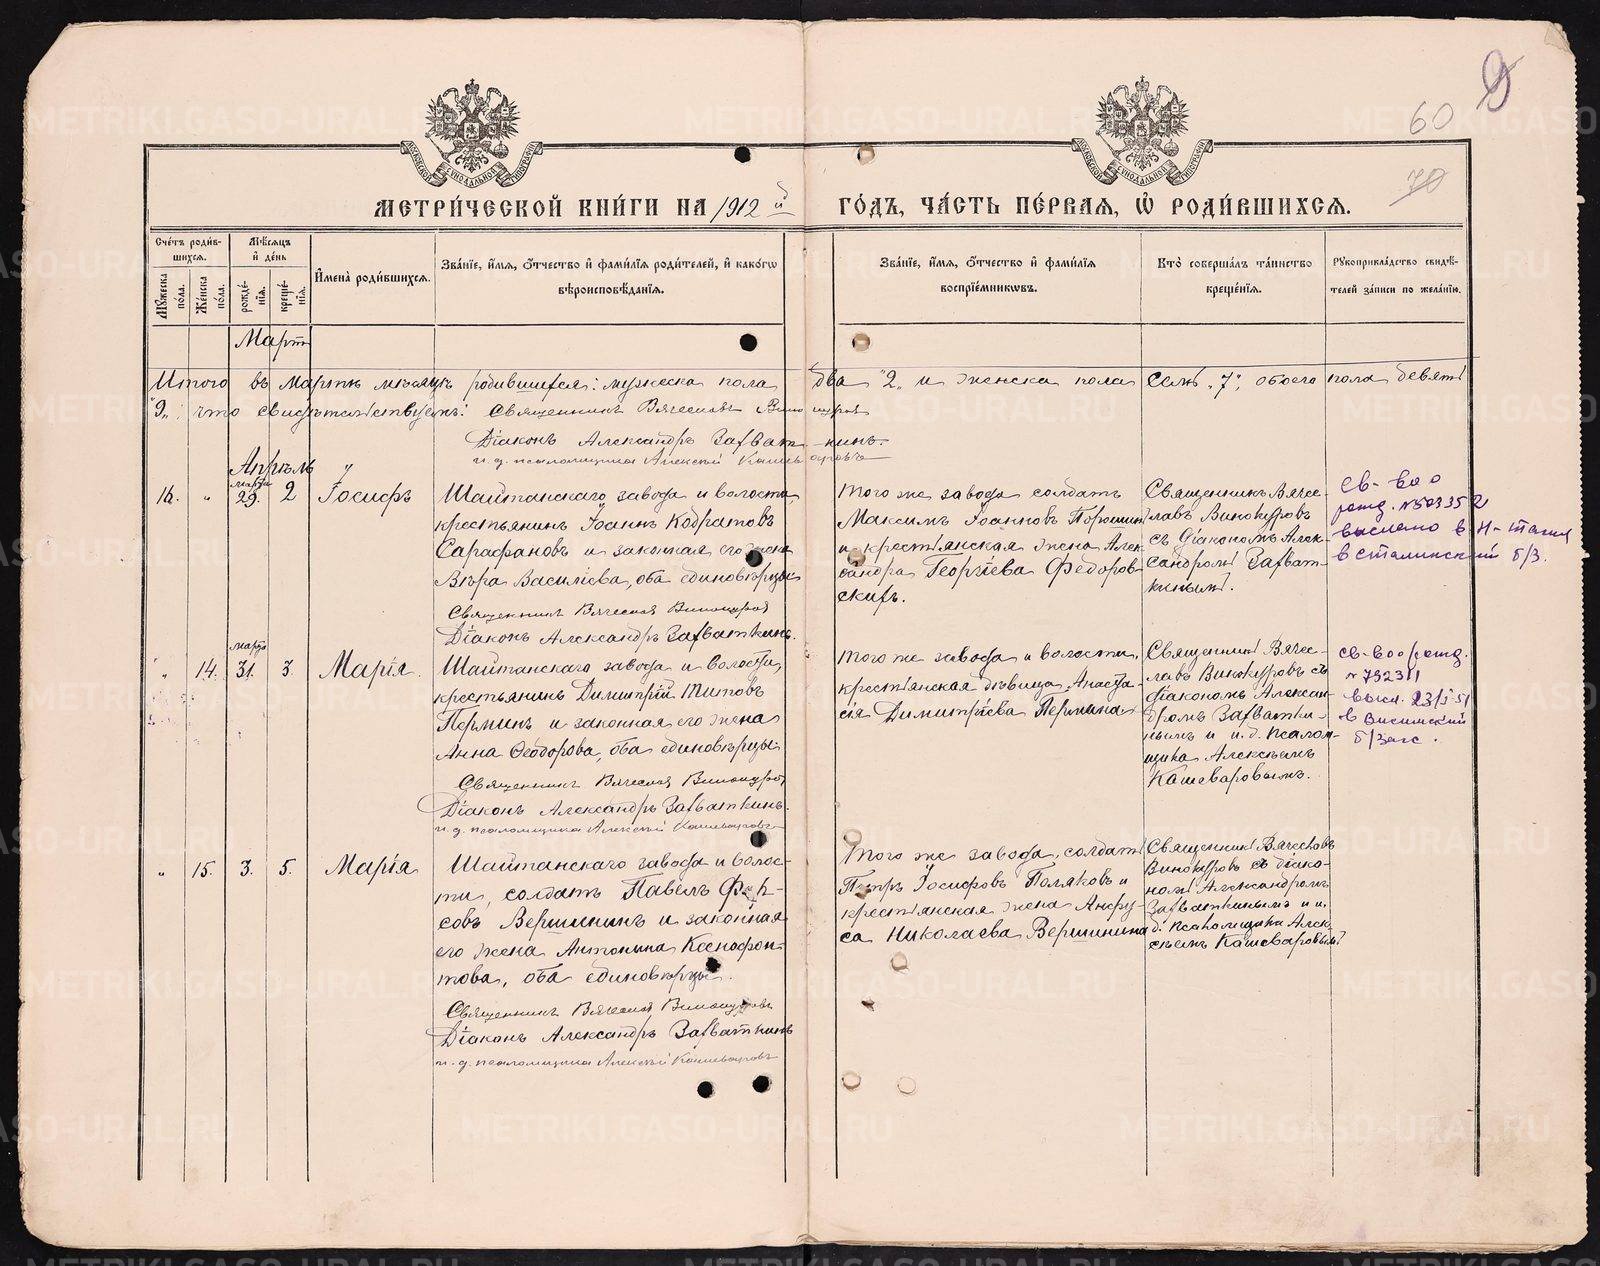 60
70
МЕТРИ́ЧЕСКОЙ КНИ́ГИ НА 1912 й
ГО́ДЪ, ЧА́СТЬ ПЕ́РВАЯ, Ѡ РОДИ́ВШИХСЯ.
Сче́тъ роди́в-
шихся.
Мѣ́сяцъ
и̂ де́нь
Мꙋ́жеска по́ла.
Же́нска по́ла.
рожде́-
нїя.
креще́-
нїя.
И҆мена̀ роди́вшихся.
Зва́нїе, и҆́мя, ѻ҆́тчество и҆ фами́лїя роди́телей, и҆ како́гѡ
вѣроисповѣ́данїя.
Зва́нїе, и҆́мя, ѻ҆́тчество и҆ фами́лїя
воспрїе́мникѡвъ.
Кто̀ соверша́лъ та́инство
креще́нїя.
Рꙋкоприкла́дство свидѣ́-
телей за́писи по жела́нїю.
Мартъ
Итого въ Мартѣ мѣсяцѣ родившихся: мужеска пола два "2" и женска пола семь "7", обоего пола девять
"9", что свидѣтельствуемъ: Священникъ Вячеславъ Винокуровъ
Діаконъ Александръ Захваткинъ.
и. д. псаломщика Алексѣй Кашеваровъ
Апрѣль
16. " марта 29. 2 Іосифъ
Шайтанскаго завода и волости
крестьянинъ Іоаннъ Кодратовъ
Сарафановъ и законная его жена
Вѣра Васильева, оба единовѣрцы
Священникъ Вячеславъ Винокуровъ
Діаконъ Александръ Захваткинъ.
Того же завода солдатъ
Максимъ Іоанновъ Порошинъ
и крестьянская жена Алек-
сандра Георгіева Федоров-
скихъ.
Священникъ Вяче-
славъ Винокуровъ
съ діакономъ Алек-
сандромъ Захват-
кинымъ.
Св-во о
рожд. №503352
выслано в Н-Тагил
в Сталинский б/З.
" 14. марта 31. 3. Марія.
Шайтанскаго завода и волости,
крестьянинъ Димитрій Титовъ
Перминъ и законная его жена
Анна Ѳеодорова, оба единовѣрцы.
Священникъ Вячеславъ Винокуровъ
Діаконъ Александръ Захваткинъ.
и. д. псаломщика Алексѣй Кашеваровъ
Того же завода и волости,
крестьянская дѣвица Анаста-
сія Димитріева Пермина.
Священникъ Вячес-
лавъ Винокуровъ съ
діакономъ Алексан-
дромъ Захватки-
нымъ и и. д. псалом-
щика Алексѣемъ
Кашеваровымъ.
Св-во о рожд.
№ 79231
высл. 23/I-51
в Висимский
б/Загс.
" 15. 3. 5. Марія
Шайтанскаго завода и волос-
ти, солдатъ Павелъ
совъ Вершининъ и законная
его жена Антонина Ксенофон-
това, оба единовѣрцы.
Священникъ Вячеславъ Винокуровъ
Діаконъ Александръ Захваткинъ
и. д. псаломщика Алексѣй Кашеваровъ
Того же завода, солдатъ
Петръ Іосифовъ Поляковъ и
крестьянская жена Анфу-
са Николаева Вершинина
Священникъ Вячеславъ
Винокуровъ съ діако-
номъ Александромъ
Захваткинымъ и и.
д. псаломщика Алек-
сѣемъ Кашеваровымъ
METRIKI.GASO-URAL.RU